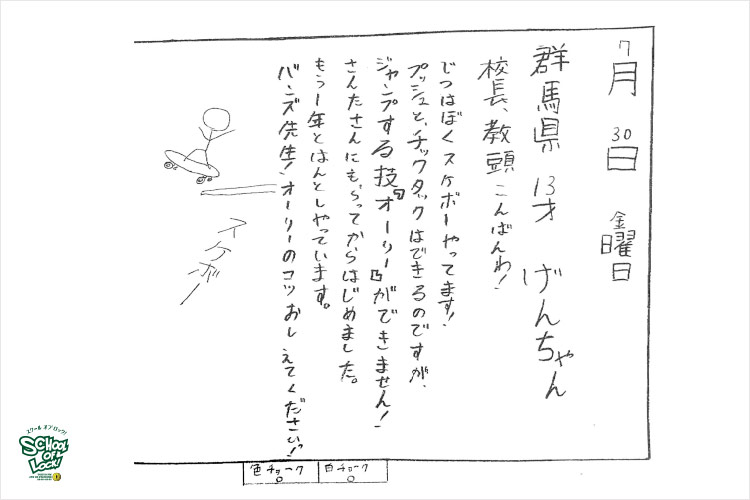 7月30日 金曜日
群馬県 13才 げんちゃん
校長、教頭 こんばんわ!
じつはぼくスケボーやってます!
プッシュと、チックタックはできるのですが、
ジャンプする技『オーリー』ができません!
さんたさんにもらってからはじめました。
もう1年とはんとしやっています。
バンズ先生!オーリーのコツおしえてください!
スケボー
色チョーク
白チョーク
スクールオブロック!
SCHOOL OF LOCK!